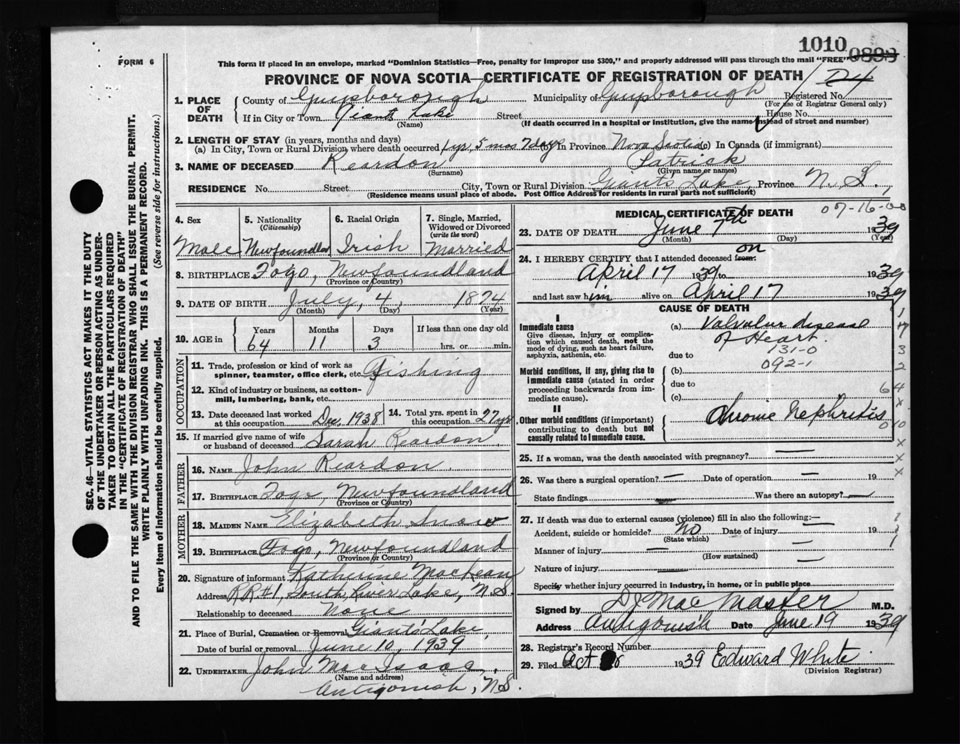 1010
0893
FORM 6
This form if placed in an envelope, marked "Dominion Statistics—Free, penalty for improper use $300," and properly addressed will pass through the mail "FREE"
PROVINCE OF NOVA SCOTIA—CERTIFICATE OF REGISTRATION OF DEATH
Registered No.
(For use of Registrar General only)
1. PLACE OF DEATH
County of Guysborough Municipality of Guysborough
If in City or Town Giants Lake Street House No.
(Name) (If death occurred in a hospital or institution, give the name instead of street and number)
2. LENGTH OF STAY (in years, months and days)
(a) In City, Town or Rural Division where death occurred 1 yr, 5 mos 7 days In Province Nova Scotia (c) In Canada (if immigrant)
3. NAME OF DECEASED Reardon Patrick
(Surname) (Given name or names)
RESIDENCE No. Street City, Town or Rural Division Giants Lake, Province N. S.,
(Residence means usual place of abode. Post Office Address for residents in rural parts not sufficient)
4. Sex
Male
5. Nationality
(Citizenship)
Newfoundland
6. Racial Origin
Irish
7. Single, Married, Widowed or Divorced
(write the word)
Married
8. BIRTHPLACE Fogo, Newfoundland
(Province or Country)
9. DATE OF BIRTH July, 4, 1874
(Month) (Day) (Year)
10. AGE in
Years Months Days If less than one day old
64 11 3 hrs. or min.
OCCUPATION
11. Trade, profession or kind of work as spinner, teamster, office clerk, etc. Fishing
12. Kind of industry or business, as cotton-mill, lumbering, bank, etc.
13. Date deceased last worked at this occupation Dec, 1938
14. Total yrs. spent in this occupation 27 yrs
15. If married give name of wife or husband of deceased Sarah Reardon
FATHER
16. NAME John Reardon
17. BIRTHPLACE Fogo, Newfoundland
(Province or Country)
MOTHER
18. MAIDEN NAME Elizabeth Snow
19. BIRTHPLACE Fogo, Newfoundland
(Province or Country)
20. Signature of informant Katherine MacLean
Address R.R.#1, South River Lake, N.S.
Relationship to deceased None
21. Place of Burial, Cremation or Removal Giants Lake,
Date of burial or removal June 10, 1939
22. UNDERTAKER John MacIsaac
(Name and address)
Antigonish, N.S.
MEDICAL CERTIFICATE OF DEATH
07-16-0-0
23. DATE OF DEATH June 7th 1939
(Month) (Day) (Year)
24. I HEREBY CERTIFY that I attended deceased from: on
April 17 1939 to 1939
and last saw him alive on April 17 1939
CAUSE OF DEATH
I
Immediate cause
Give disease, injury or complication which caused death, not the mode of dying, such as heart failure, asphyxia, asthenia, etc.
(a) Valvular disease of Heart
131-0
092-1
due to
Morbid conditions, if any, giving rise to immediate cause (stated in order proceeding backwards from immediate cause).
(b)
due to
(c)
II
Other morbid conditions (if important) contributing to death but not causally related to immediate cause.
Chronic Nephritis
25. If a woman, was the death associated with pregnancy? —
26. Was there a surgical operation? — Date of operation — 19
State findings — Was there an autopsy? —
27. If death was due to external causes (violence) fill in also the following:—
Accident, suicide or homicide? No Date of injury 19
(State which)
Manner of injury —
(How sustained)
Nature of injury —
Specify whether injury occurred in industry, in home, or in public place
Signed by D J MacMaster M.D.
Address Antigonish Date June 19 1939
28. Registrar's Record Number
29. Filed Oct 1939 Edward White
(Division Registrar)
SEC. 46—VITAL STATISTICS ACT MAKES IT THE DUTY
OF THE UNDERTAKER OR PERSON ACTING AS UNDER-
TAKER TO OBTAIN ALL THE PARTICULARS REQUIRED
IN THE "CERTIFICATE OF REGISTRATION OF DEATH"
AND TO FILE THE SAME WITH THE DIVISION REGISTRAR WHO SHALL ISSUE THE BURIAL PERMIT.
WRITE PLAINLY WITH UNFADING INK. THIS IS A PERMANENT RECORD.
Every item of information should be carefully supplied. (See reverse side for instructions.)